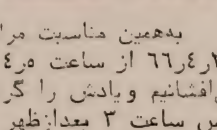 بدهمین مناسبت مرا
ر٤ر٦٦ از ساعت ٤ر٥
افشانیم ویادش را گر
س ساعت ٣ بعدازظهر